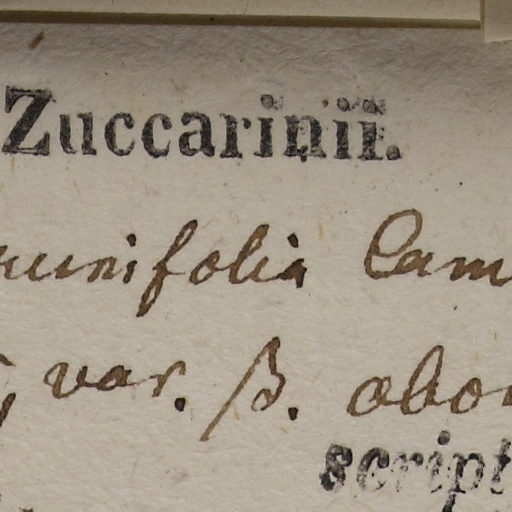 Zuccarinii.
runifolia Cam
var. β. obo
script